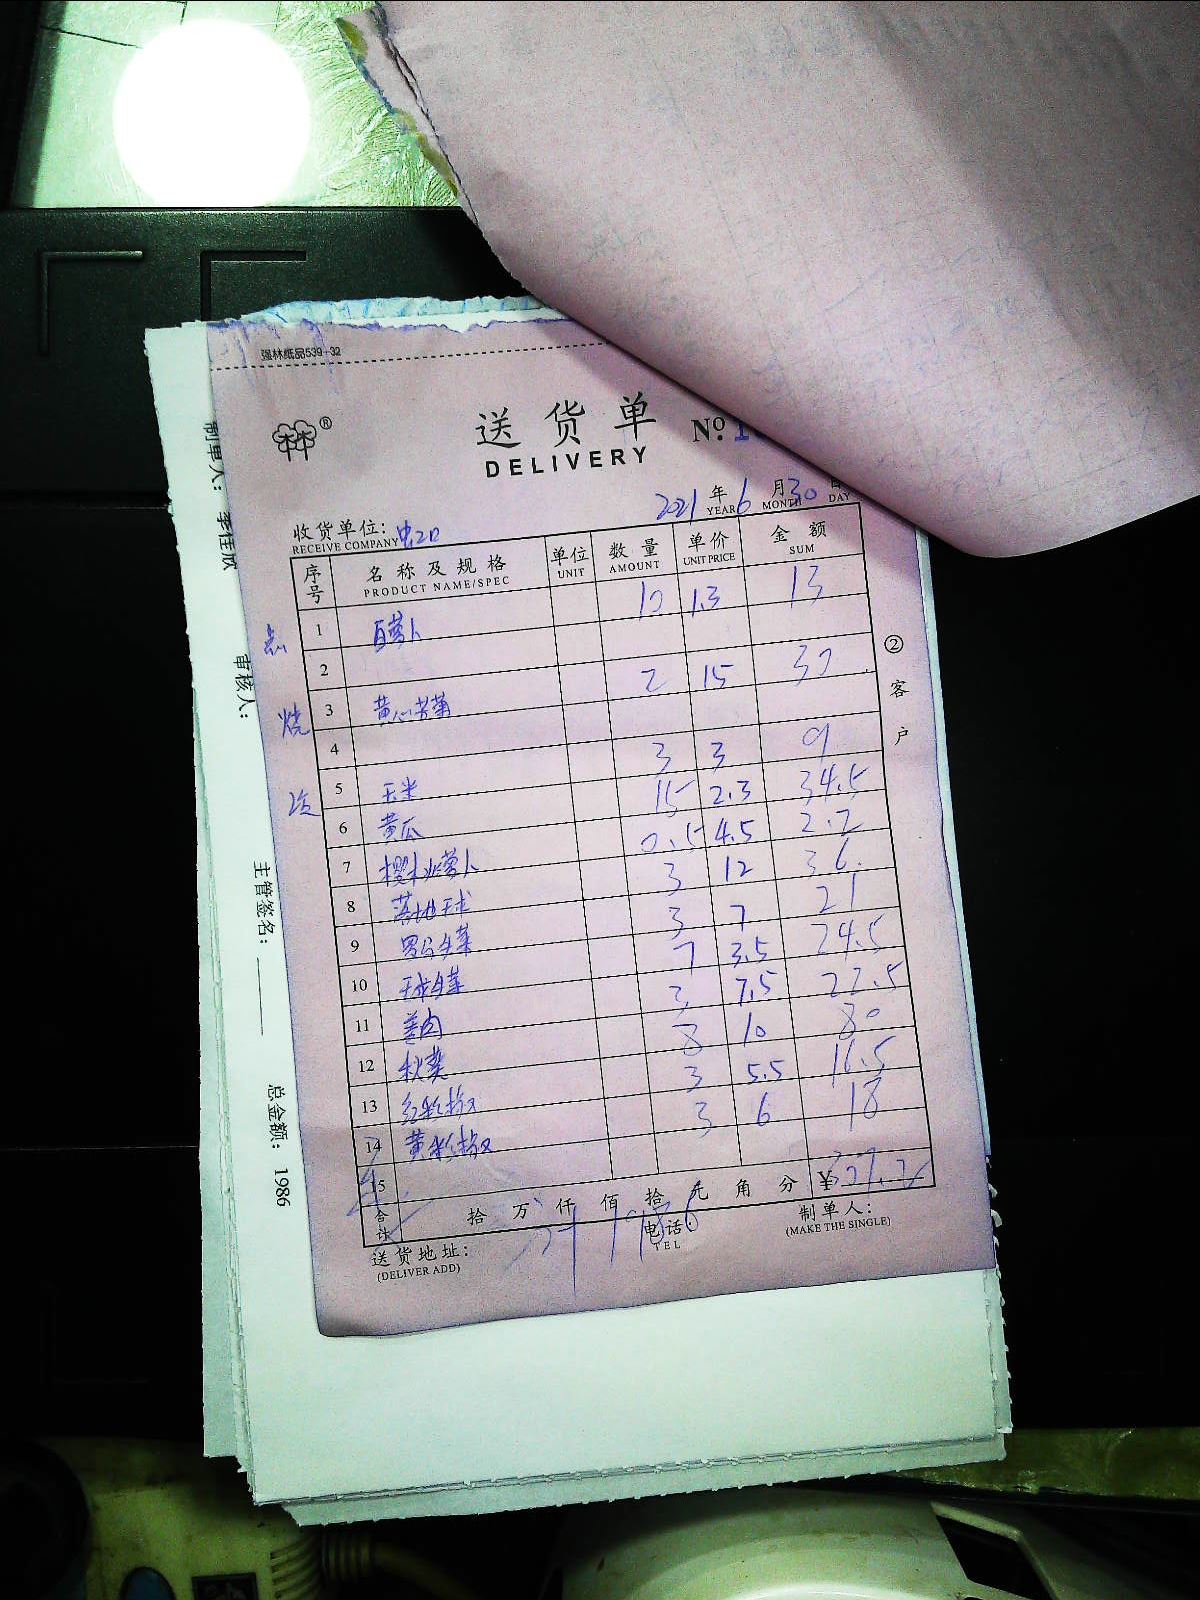 强林纸品539-32
®
送货单 No. 1
DELIVERY
2021 年 6 月 30 日
YEAR MONTH DAY
收货单位:
RECEIVE COMPANY
序号 名称及规格 单位 数量 单价 金额
PRODUCT NAME/SPEC UNIT AMOUNT UNIT PRICE SUM
1 白萝卜 10 1.3 13
2
3 黄心 2 15 30
4
5 玉米 3 3 9
6 黄瓜 15 2.3 34.5
7 樱桃萝卜 0.5 4.5 2.2
8 3 12 36.
9 罗马生菜 3 7 21
10 球生菜 7 3.5 24.5
11 姜肉 3 7.5 22.5
12 秋葵 8 10 80
13 红彩椒 3 5.5 16.5
14 黄彩椒 3 6 18
15
合计 拾 万 仟 佰 拾 元 角 分 ¥307.2
1986
送货地址:
(DELIVER ADD)
电话:
TEL
制单人:
(MAKE THE SINGLE)
②客户
烧
制单人: 李佳欣
审核人:
主管签名:
总金额: 1986